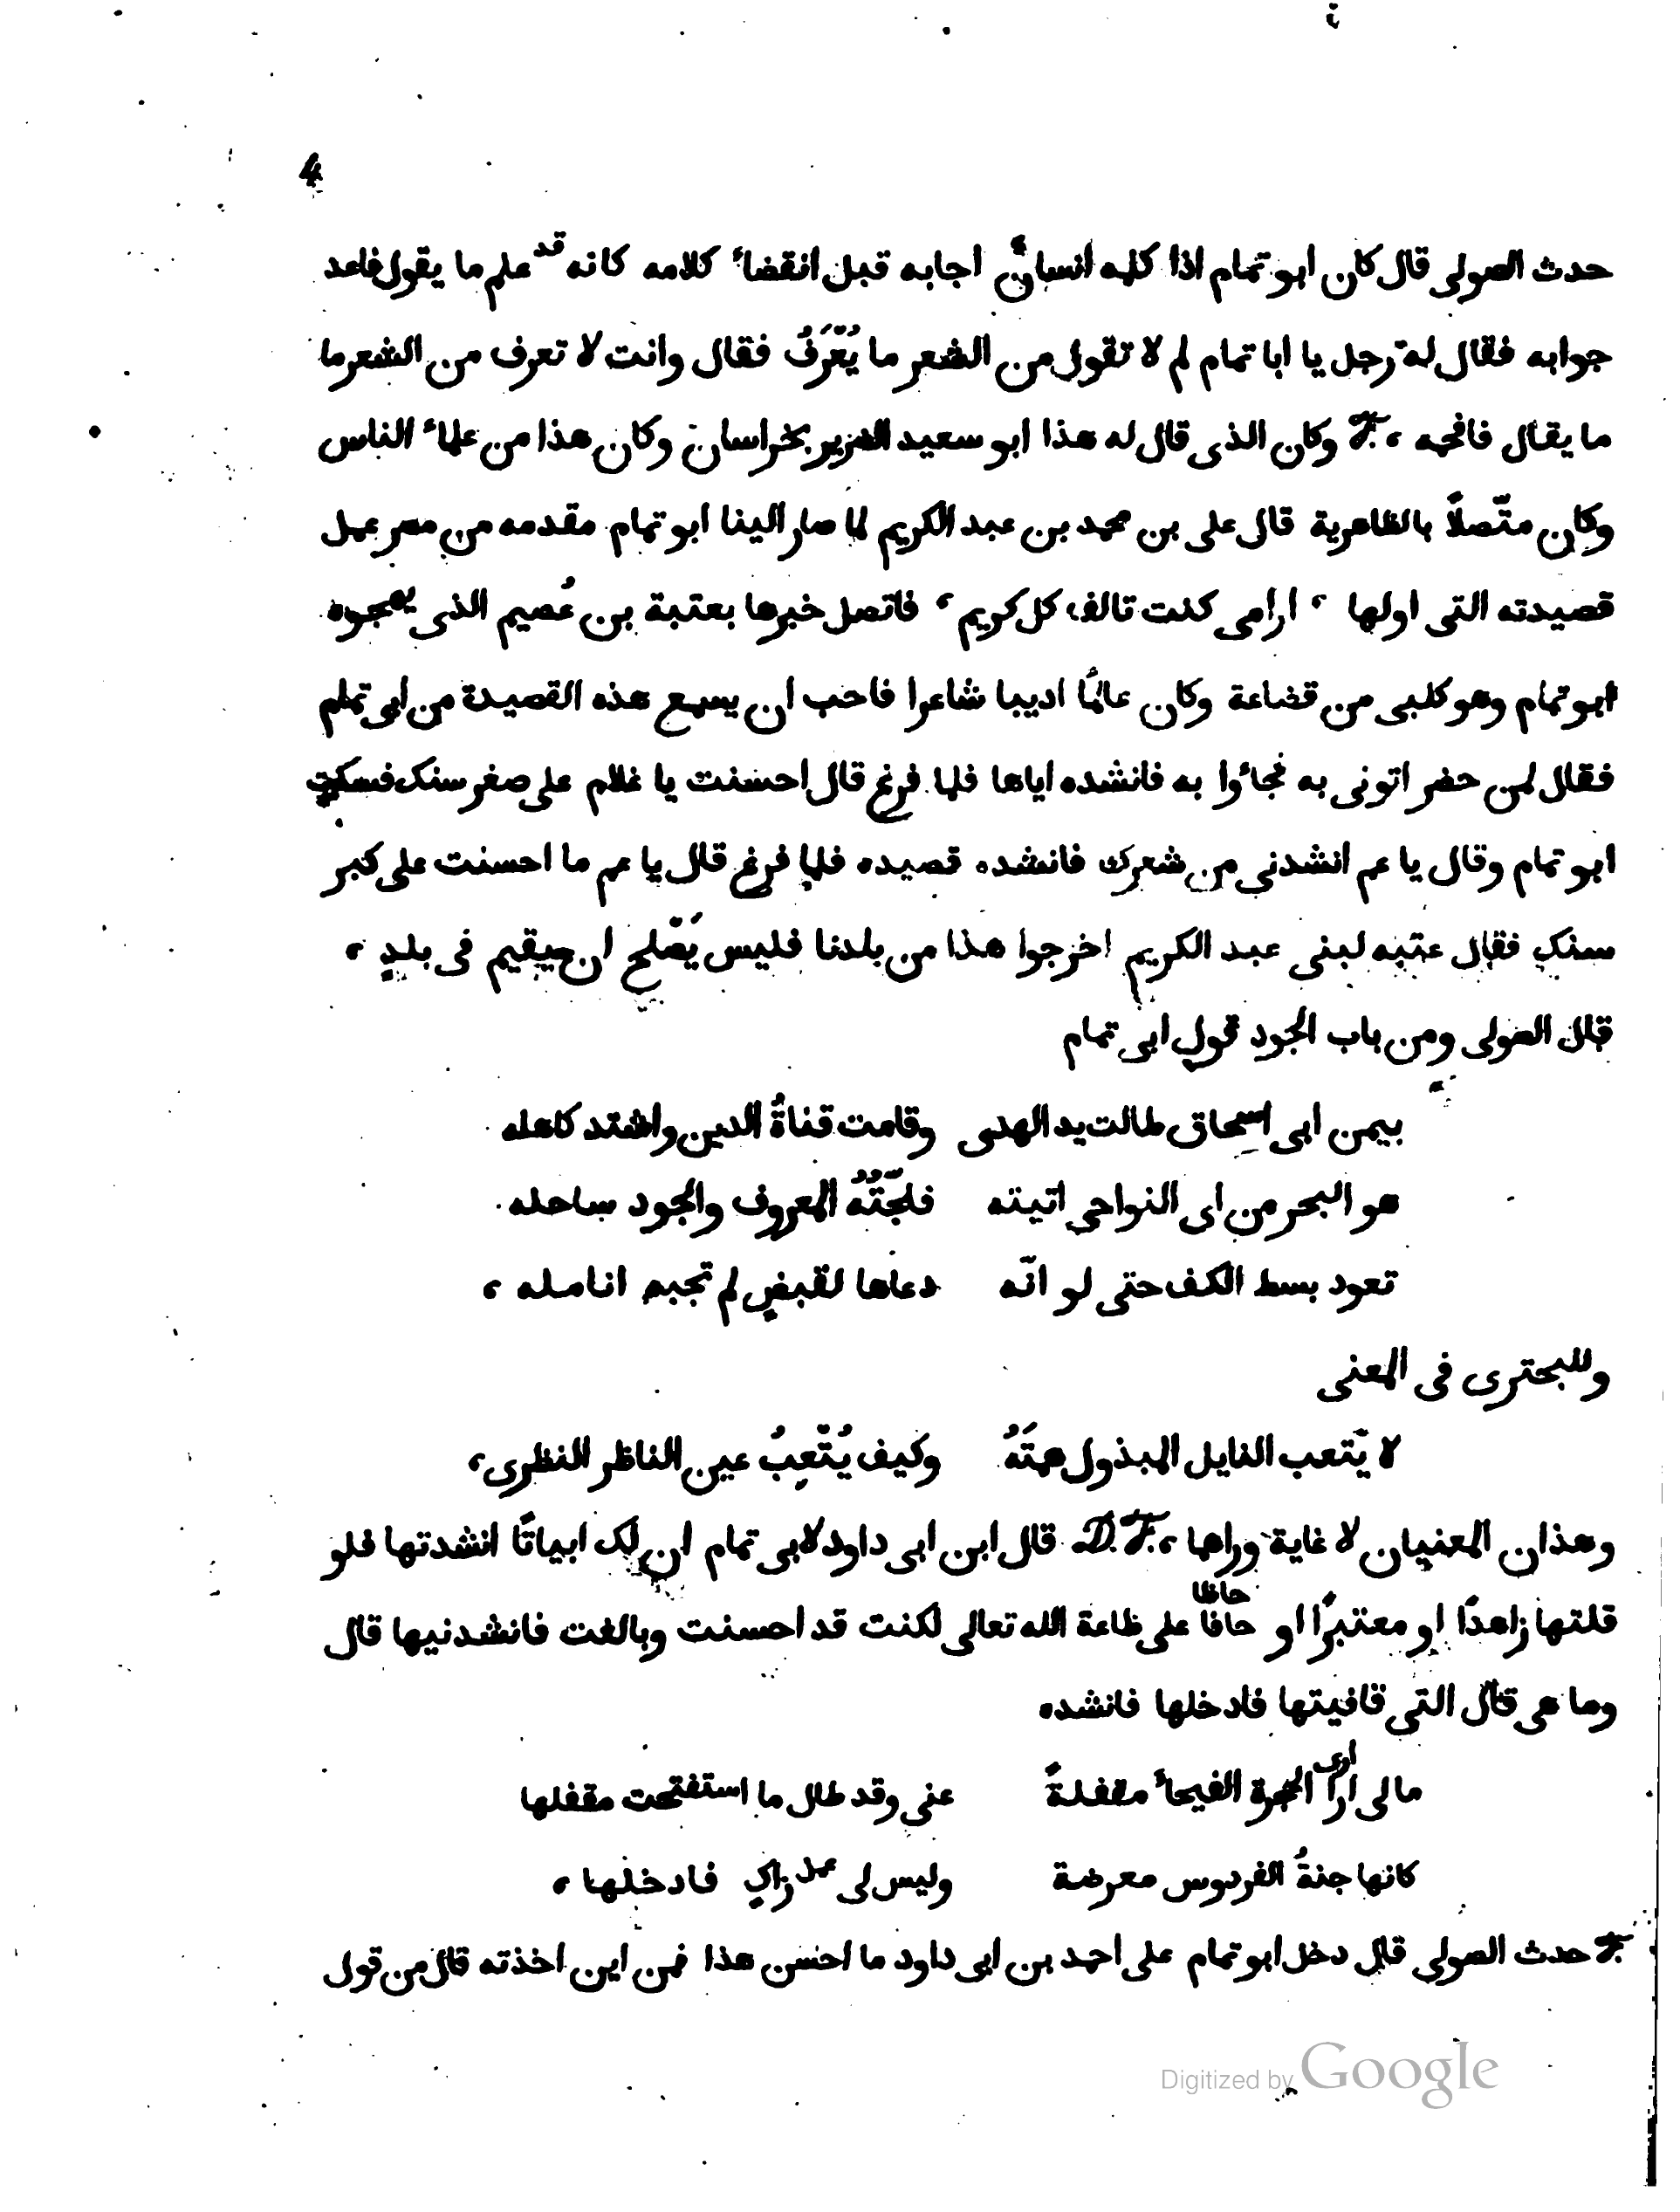 4
حدث الصولى قال كان ابو تمام اذا كلمه انسانٌ اجابه قبل انقضاء كلامه كانه قد علم ما يقول فاعد
جوابه فقال له رجل يا ابا تمام لم لا تقول من الشعر ما يُعْرَفُ فقال وانت لا تعرف من الشعر ما
ما يقال فافحمه ، F. وكان الذى قال له هذا ابو سعيد الضرير بخراسان وكان هذا من علماء الناس
وكان متّصلاً بالظاهرية قال على بن محمد بن عبد الكريم لما صار الينا ابو تمام مقدمه من مصر عمل
قصيدته التى اولها ، ارامى كنت تالف كل كريم ، فاتصل خبرها بعتبة بن عُصيم الذى يهجوه
ابو تمام وهو كلبى من قضاعة وكان عالمًا اديبا شاعرا فاحب ان يسمع هذه القصيدة من ابى تمام
فقال لمن حضر اتونى به فجاءوا به فانشده اياها فلما فرغ قال احسنت يا غلام على صغر سنك فسكت
ابو تمام وقال يا عم انشدنى من شعرك فانشده قصيده فلما فرغ قال يا عم ما احسنت على كبر
سنك فقال عتبه لبنى عبد الكريم اخرجوا هذا من بلدنا فليس يَصْلح ان يقيم فى بلدٍ ،
قال الصولى ومن باب الجود قول ابى تمام
بيمن ابى اسحاق طالت يد الهدى وقامت قناةُ الدين واشتد كاهله
هو البحر من اى النواحى اتيته فلجّتُهُ المعروف والجود ساحله
تعود بسط الكف حتى لو انّه دعاها لقبضٍ لم تجبه انامله ،
وللبحترى فى المعنى
لا يَتعب النايل المبذول همتَهُ وكيف يُتْعِبُ عين الناظر النظرى ،
وهذان المعنيان لا غاية وراها ، D.F. قال ابن ابى داود لابى تمام ان لك ابياتًا انشدتها فلو
حاظا
قلتها زاهدًا او معتبرًا او حافًا على ظاعة الله تعالى لكنت قد احسنت وبالغت فانشدنيها قال
وما هى قال التى قافيتها فادخلها فانشده
ارى
مالى ارا الحجرة الفيحاء مقفلةً عنى وقد طال ما استفتحت مقفلها
كانها جنةُ الفردوس معرضة وليس لى عمل زاكٍ فادخلها ،
F. حدث الصولى قال دخل ابو تمام على احمد بن ابى داود ما احسن هذا فمن اين اخذته قال من قول
Digitized by Google